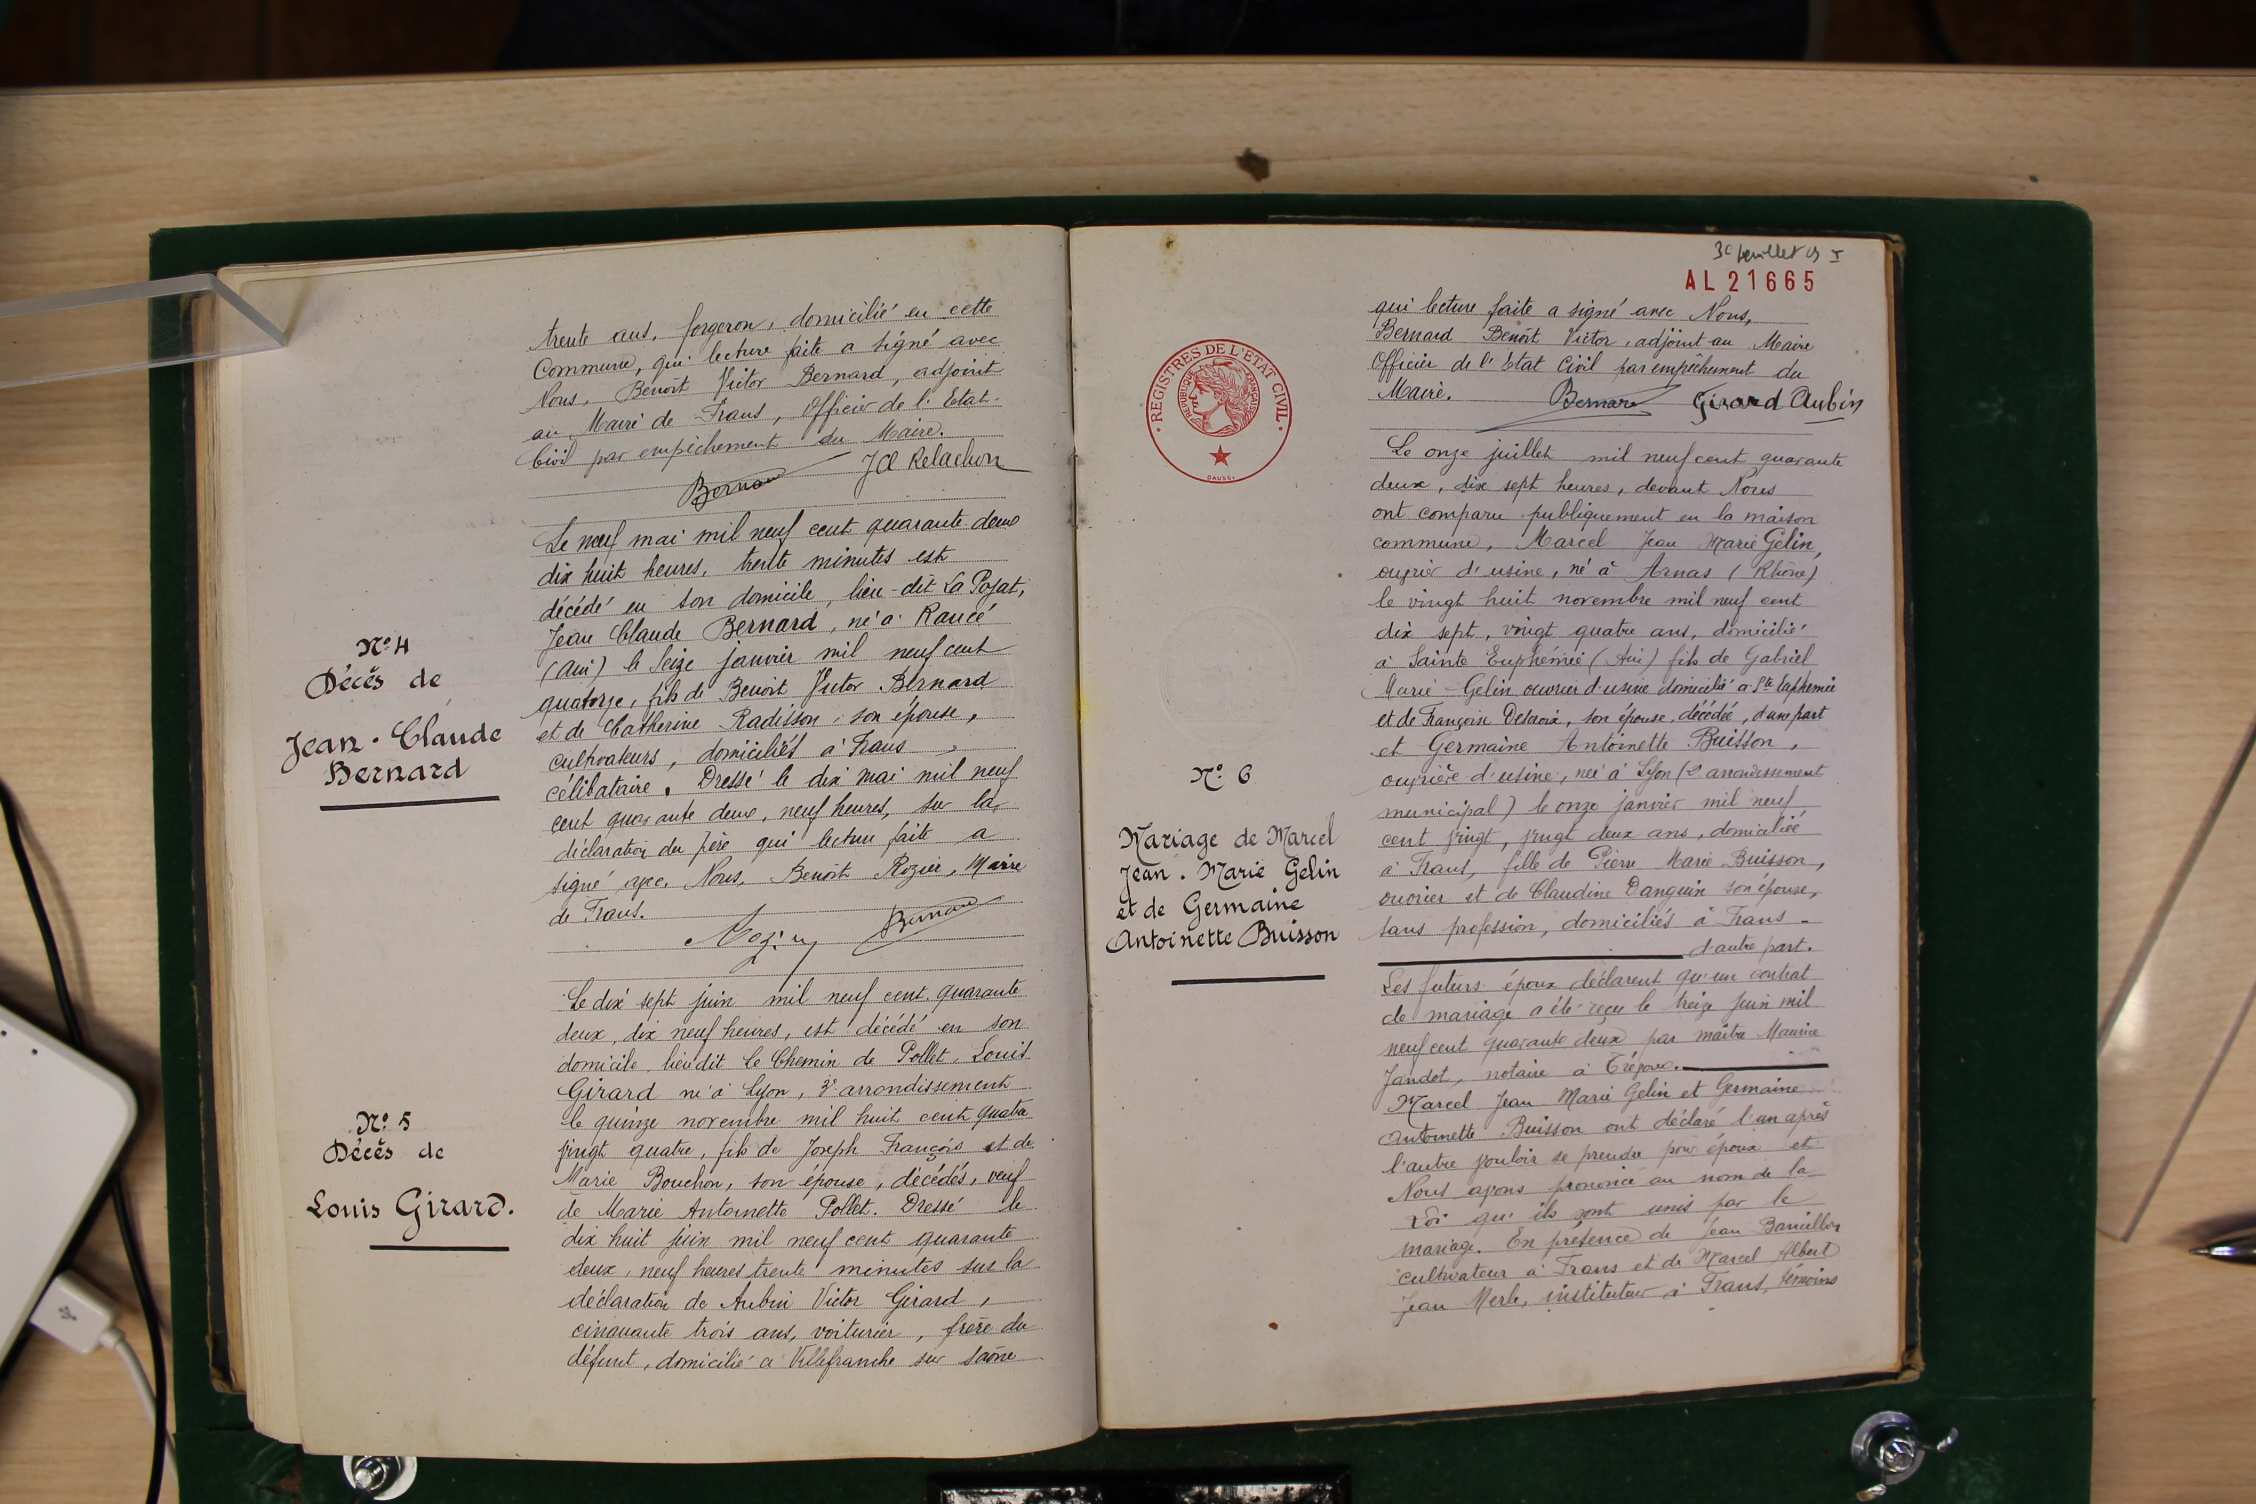 trente ans, forgeron, domicilié en cette
Commune, qui lecture faite a signé avec
Nous, Benoît Victor Bernard, adjoint
au Maire de Frans, Officier de l'Etat-
Civil par empêchement du Maire.
Bernard
Le neuf mai mil neuf cent quarante deux
dix huit heures, trente minutes est
décédé en son domicile, lieu-dit La Poyat,
Jean Claude Bernard, né à Rancé
(Ain) le seize janvier mil neuf cent
quatorze, fils de Benoît Victor Bernard
et de Catherine Radisson, son épouse,
cultivateurs, domiciliés à Frans,
célibataire. Dressé le dix mai mil neuf
cent quarante deux, neuf heures, sur la
déclaration du père qui lecture faite a
signé avec Nous, Benoît Rozier, Maire
de Frans.
Rozier Bernard
N° 4
Décès de
Jean-Claude
Bernard
Le dix sept juin mil neuf cent quarante
deux, dix neuf heures, est décédé en son
domicile, lieu dit Le Chemin de Pollet, Louis
Girard né à Lyon, 3e arrondissement
le quinze novembre mil huit cent quatre
vingt quatre, fils de Joseph François et de
Marie Bouchon, son épouse, décédés, veuf
de Marie Antoinette Pollet. Dressé le
dix huit juin mil neuf cent quarante
deux, neuf heures trente minutes sur la
déclaration de Aubin Victor Girard,
cinquante trois ans, voiturier, frère du
défunt, domicilié à Villefranche sur Saône
N° 5
Décès de
Louis Girard.
AL 21665
qui lecture faite a signé avec Nous,
Bernard Benoît Victor, adjoint au Maire
Officier de l'Etat Civil par empêchement du
Maire. Bernard Girard Aubin
REGISTRES DE L'ETAT CIVIL
REPUBLIQUE FRANÇAISE
Le onze juillet mil neuf cent quarante
deux, dix sept heures, devant Nous
ont comparu publiquement en la maison
commune, Marcel Jean Marie Gelin,
ouvrier d'usine, né à Arnas (Rhône)
le vingt huit novembre mil neuf cent
dix sept, vingt quatre ans, domicilié
à Sainte Euphémie (Ain) fils de Gabriel
Marie Gelin ouvrier d'usine domicilié à Ste Euphémie
et de Françoise Delacroix, son épouse, décédée, d'une part
et Germaine Antoinette Buisson,
ouvrière d'usine, née à Lyon (2e arrondissement
municipal) le onze janvier mil neuf
cent vingt, vingt deux ans, domiciliée
à Frans, fille de Pierre Marie Buisson,
ouvrier et de Claudine Danguin son épouse,
sans profession, domiciliés à Frans -
d'autre part.
Les futurs époux déclarent qu'un contrat
de mariage a été reçu le treize juin mil
neuf cent quarante deux par maître Maurice
Jandet, notaire à Trévoux.
Marcel Jean Marie Gelin et Germaine
Antoinette Buisson ont déclaré l'un après
l'autre vouloir se prendre pour époux et
Nous avons prononcé au nom de la
Loi qu'ils sont unis par le
mariage. En présence de Jean
cultivateur à Frans et de Marcel Albert
Jean Merle, instituteur à Frans, témoins
N° 6
Mariage de Marcel
Jean. Marie Gelin
et de Germaine
Antoinette Buisson